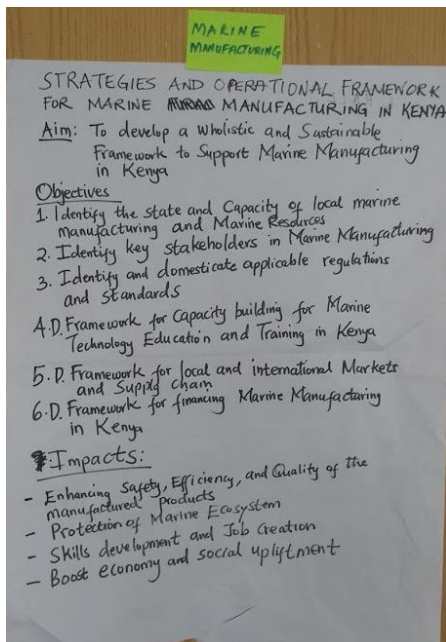 MARINE
MANUFACTURING
STRATEGIES AND OPERATIONAL FRAMEWORK
FOR MARINE MANUFACTURING IN KENYA
Aim: To develop a Wholistic and Sustainable
Framework to Support Marine Manufacturing
in Kenya
Objectives
1. Identify the state and Capacity of local marine
manufacturing and Marine Resources
2. Identify key stakeholders in Marine Manufacturing
3. Identify and domesticate applicable regulations
and standards
4.D. Framework for Capacity building for Marine
Technology Education and Training in Kenya
5.D. Framework for local and international Markets
and Supply Chain
6.D. Framework for financing Marine Manufacturing
in Kenya
Impacts:
- Enhancing Safety, Efficiency, and Quality of the
manufactured products
- Protection of Marine Ecosystem
- Skills development and Job Creation
- Boost economy and social uplyftment